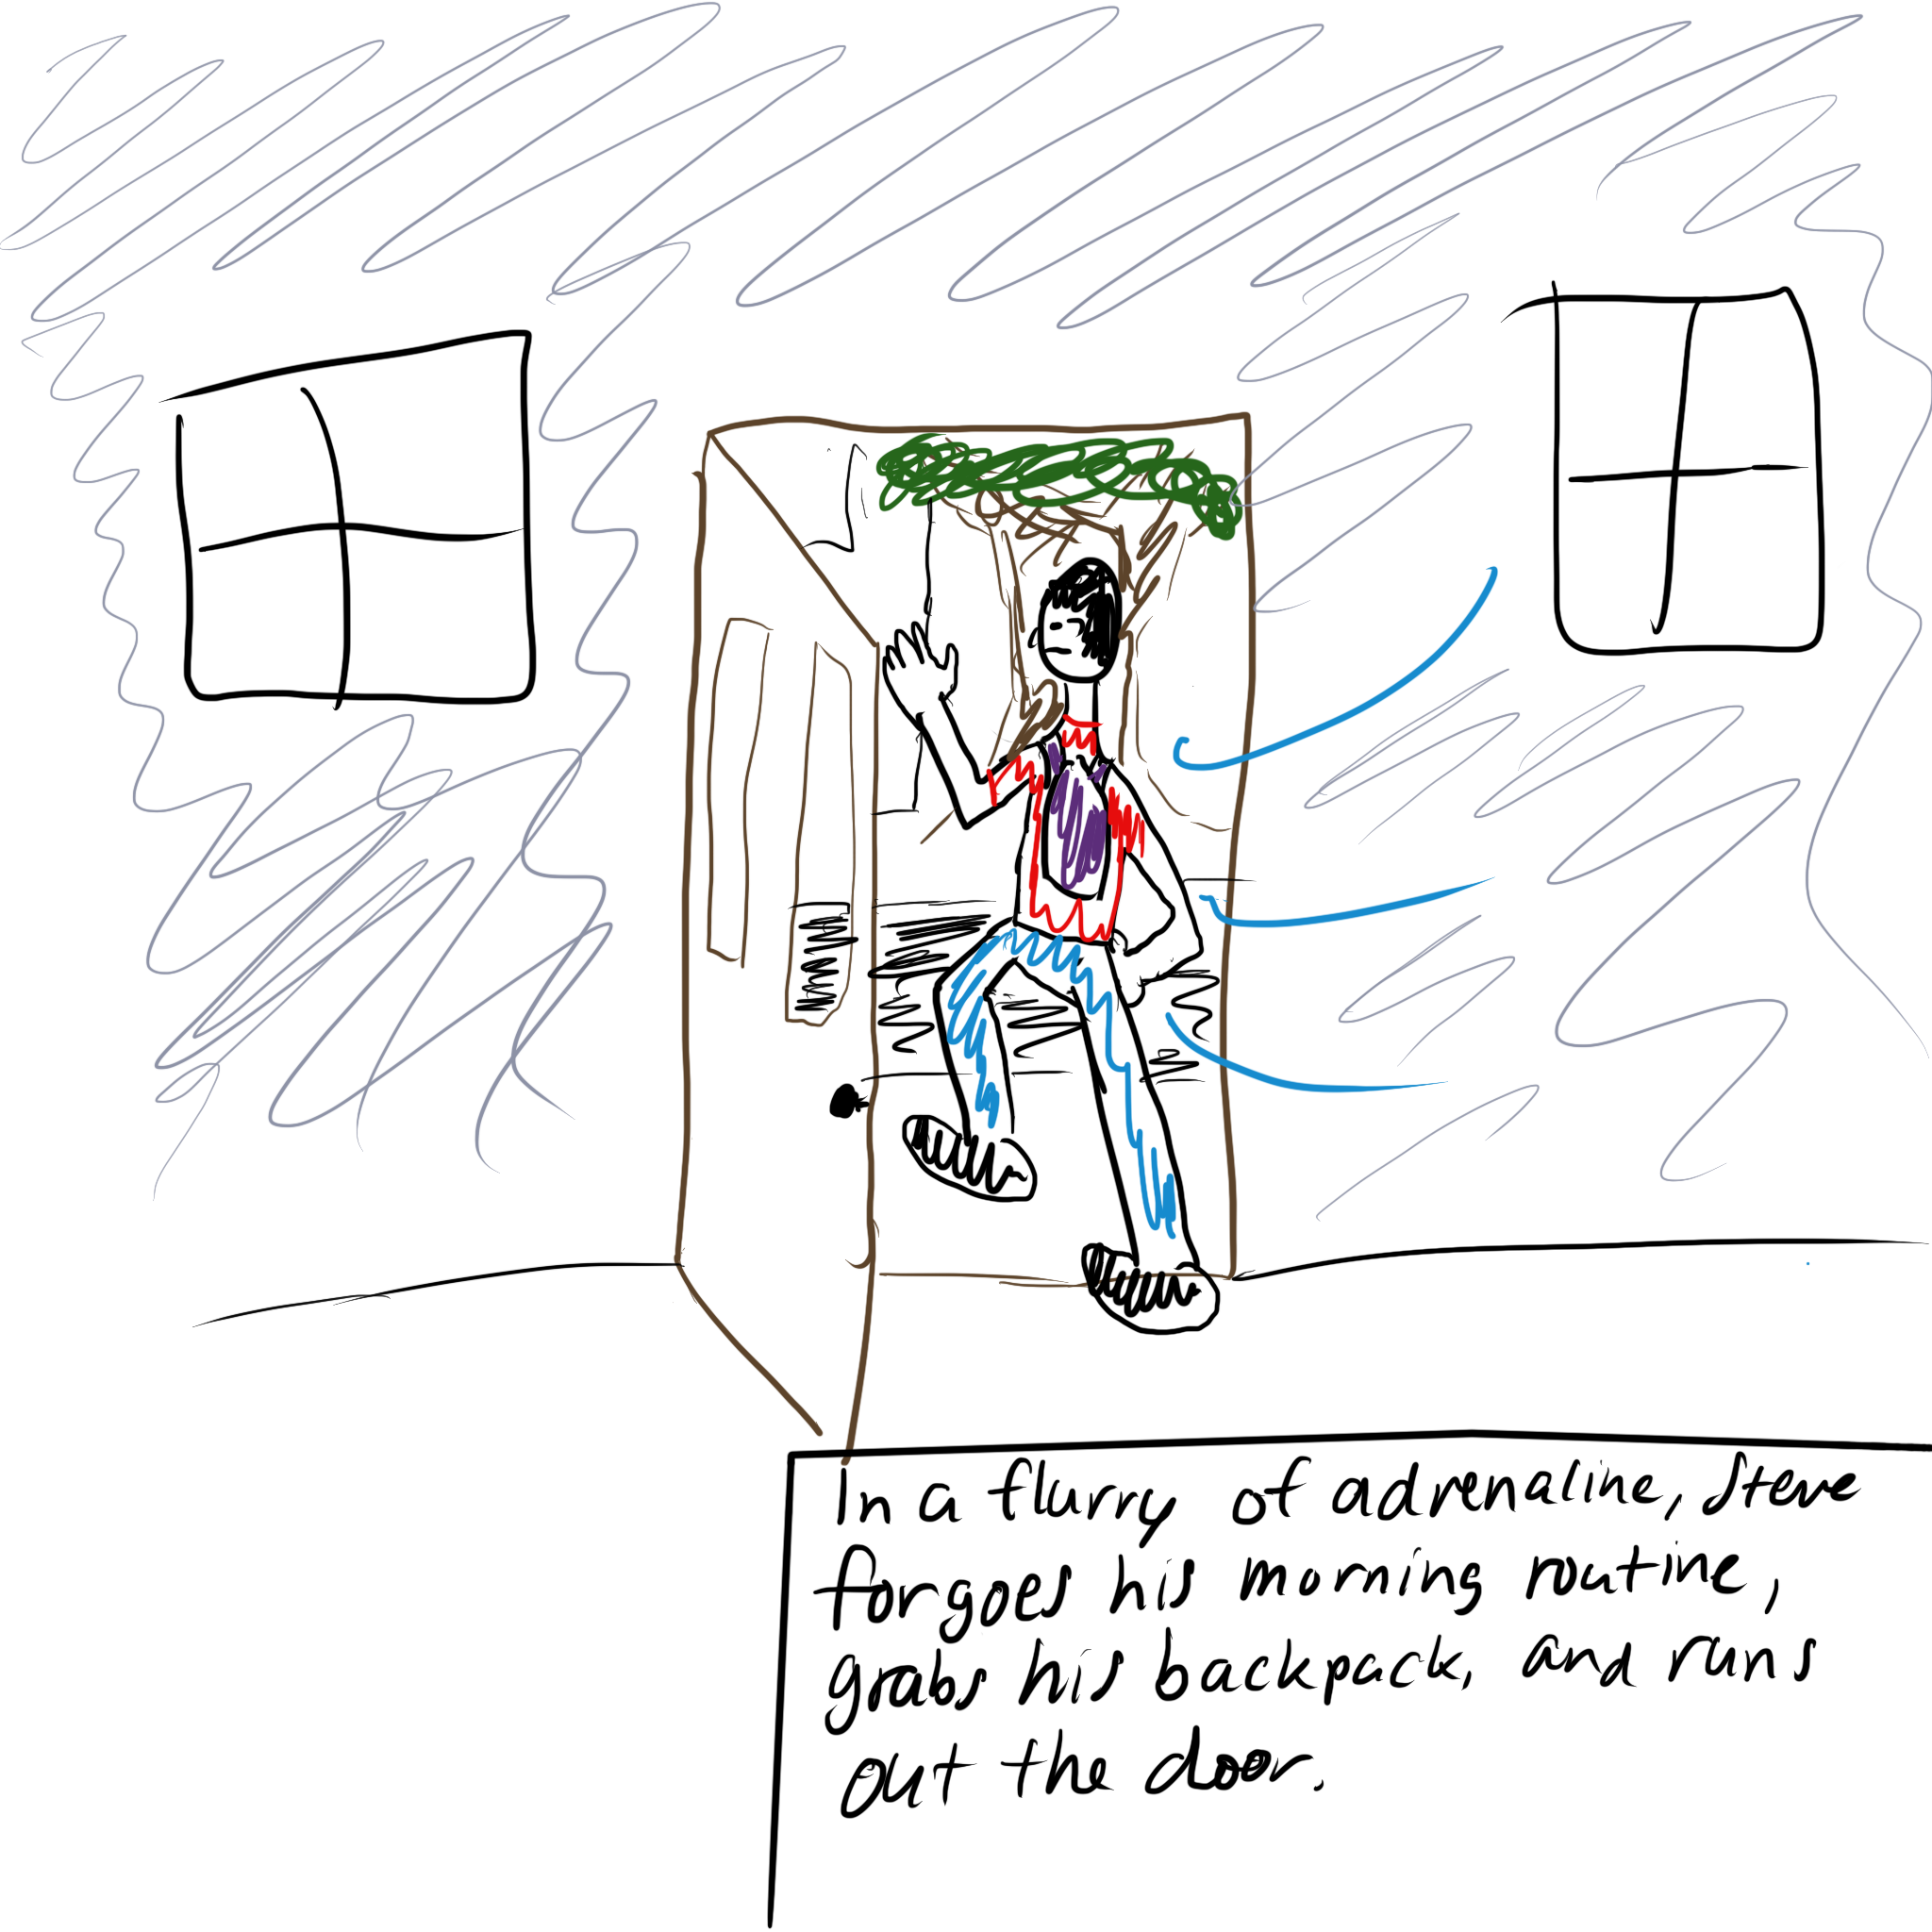 In a flurry of adrenaline, Steve
forgoes his morning routine,
grabs his backpack, and runs
out the door.